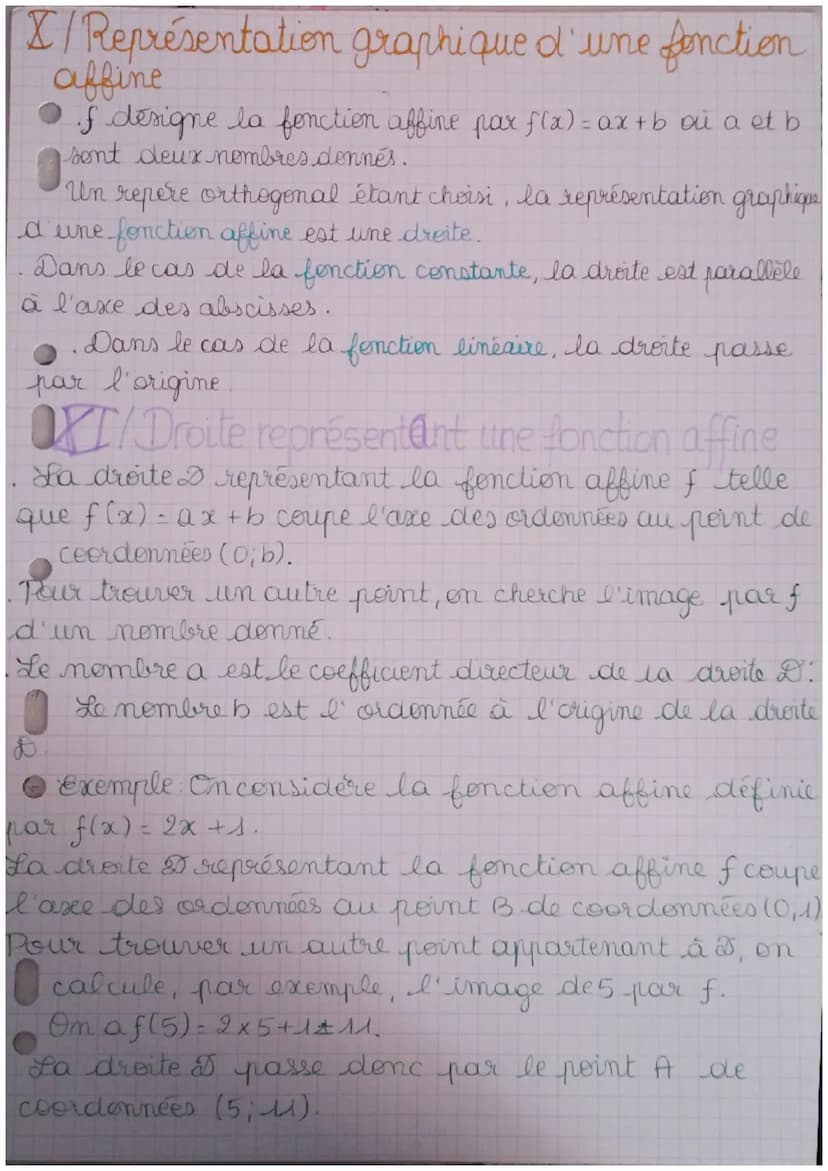 X/Représentation graphique d'une fonction
affine
. f désigne la fonction affine par f(x) = ax + b où a et b
sont deux nombres donnés.
Un repère orthogonal étant choisi, la représentation graphique
d'une fonction affine est une droite.
. Dans le cas de la fonction constante, la droite est parallèle
à l'axe des abscisses.
. Dans le cas de la fonction linéaire, la droite passe
par l'origine.
XI/Droite représentant une fonction affine
. La droite D représentant la fonction affine f telle
que f(x) = ax + b coupe l'axe des ordonnées au point de
coordonnées (0;b).
. Pour trouver un autre point, on cherche l'image par f
d'un nombre donné.
. Le nombre a est le coefficient directeur de la droite D:
Le nombre b est l'ordonnée à l'origine de la droite
D.
Exemple: On considère la fonction affine définie
par f(x) = 2x + 1.
La droite D représentant la fonction affine f coupe
l'axe des ordonnées au point B de coordonnées (0,1)
Pour trouver un autre point appartenant à D, on
calcule, par exemple, l'image de 5 par f.
On a f(5) = 2 x 5 + 1 = 11.
La droite D passe donc par le point A de
coordonnées (5;11).